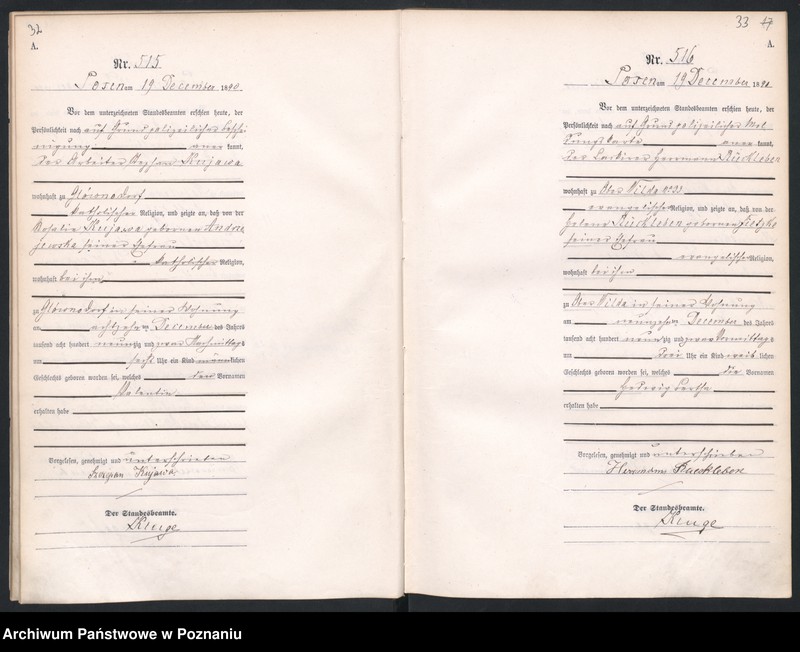 32
A.
Nr. 515
Posen am 19 December 1890
Vor dem unterzeichneten Standesbeamten erschien heute, der
Persönlichkeit nach auf Grund polizeilicher Beschei-
nigung aner kannt,
der Arbeiter Kujawa
wohnhaft zu Glówno Dorf
katholischer Religion, und zeigte an, daß von der
Rosalia Kujawa geborenen Andrze
jewska seiner Ehefrau
katholischer Religion,
wohnhaft bei ihm
zu Glówno Dorf in seiner Wohnung
am achtzehnten December des Jahres
tausend acht hundert neunzig und zwar Nachmittags
um sechs Uhr ein Kind männlichen
Geschlechts geboren worden sei, welches den Vornamen
Valentin
erhalten habe
Vorgelesen, genehmigt und unterschrieben
Kujawa
Der Standesbeamte.
33 17
A.
Nr. 516
Posen am 19 December 1890
Vor dem unterzeichneten Standesbeamten erschien heute, der
Persönlichkeit nach auf Grund polizeilicher Mel
dungskarte aner kannt,
der Lackirer Herrmann Rückleben
wohnhaft zu Ober Wilda
evangelischer Religion, und zeigte an, daß von der
Helene Rückleben geborenen
seiner Ehefrau
evangelischer Religion,
wohnhaft bei ihm
zu Ober Wilda in seiner Wohnung
am neunzehnten December des Jahres
tausend acht hundert neunzig und zwar Vormittags
um drei Uhr ein Kind weiblichen
Geschlechts geboren worden sei, welches die Vornamen
Hedwig Bertha
erhalten habe
Vorgelesen, genehmigt und unterschrieben
Herrmann Rueckleben
Der Standesbeamte.
Archiwum Państwowe w Poznaniu